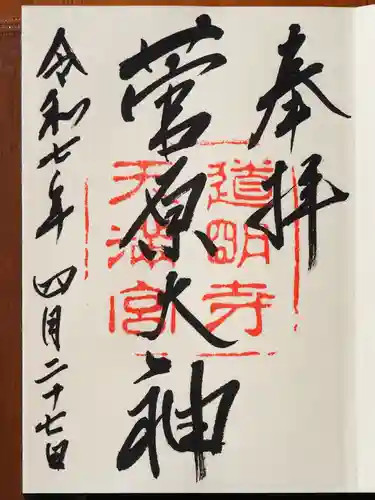 奉拝
菅原大神
道明寺
天満宮
令和七年四月二十七日